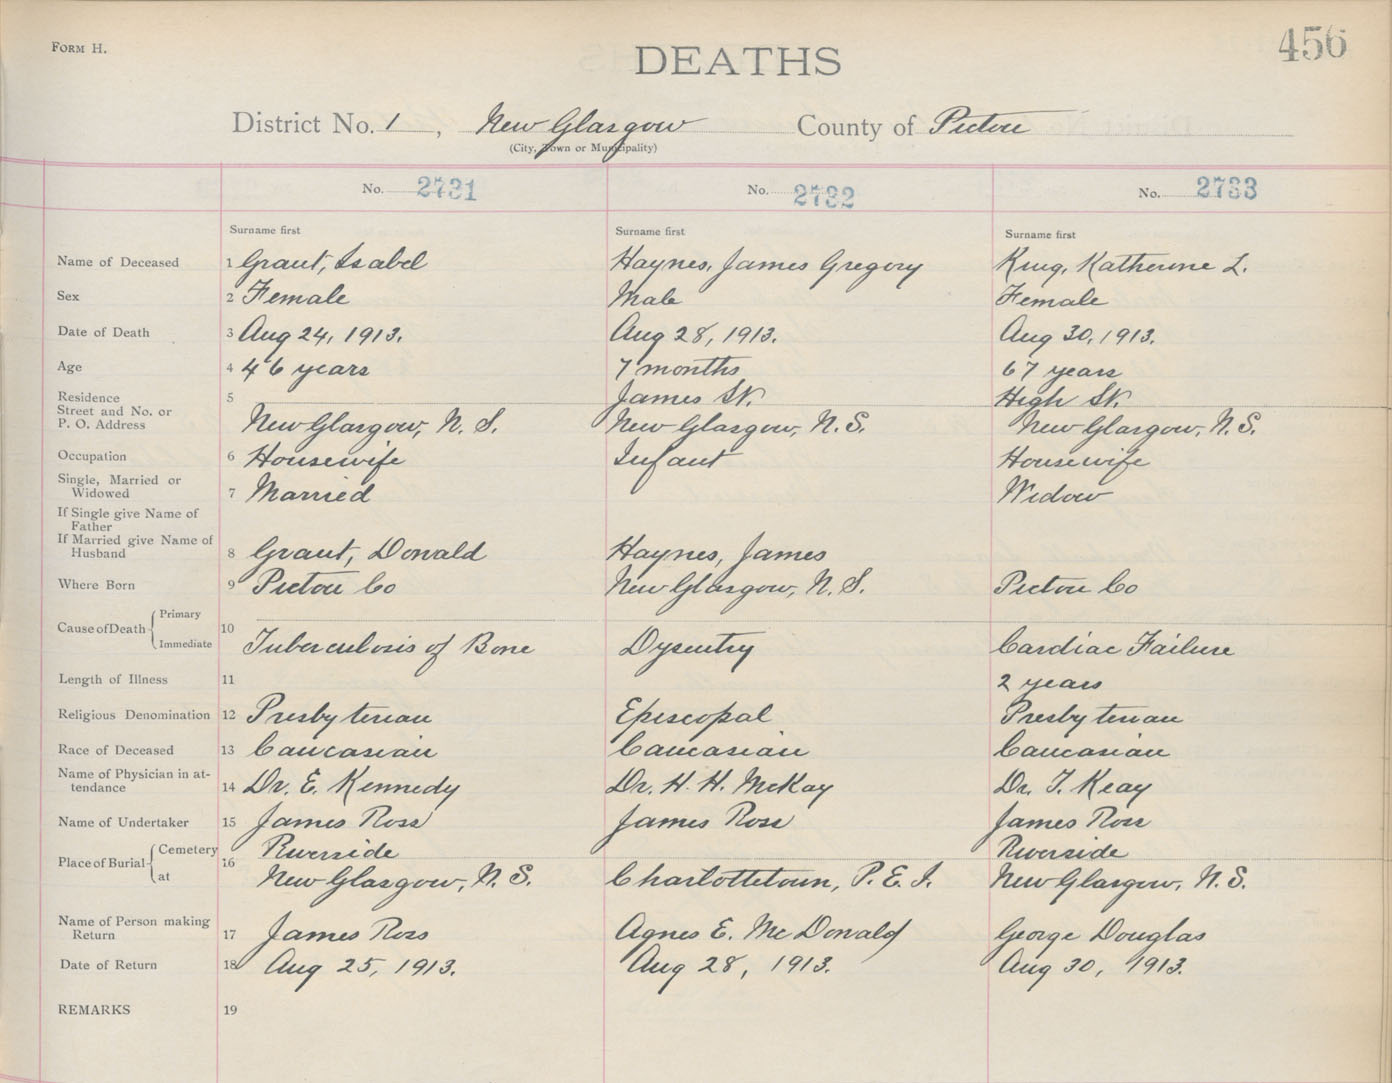 FORM H.
456
DEATHS
District No. 1, New Glasgow County of Pictou
(City, Town or Municipality)
No. 2731 No. 2732 No. 2733
Surname first Surname first Surname first
Name of Deceased 1 Grant, Isabel Haynes, James Gregory King, Katherine L.
Sex 2 Female Male Female
Date of Death 3 Aug 24, 1913. Aug 28, 1913. Aug 30, 1913.
Age 4 46 years 7 months 67 years
Residence 5 James St. High St.
Street and No. or
P. O. Address New Glasgow, N. S. New Glasgow, N.S. New Glasgow, N.S.
Occupation 6 Housewife Infant Housewife
Single, Married or
Widowed 7 Married Widow
If Single give Name of
Father
If Married give Name of
Husband 8 Grant, Donald Haynes, James
Where Born 9 Pictou Co New Glasgow, N. S. Pictou Co
Primary
Cause of Death 10
Immediate Tuberculosis of Bone Dysentry Cardiac Failure
Length of Illness 11 2 years
Religious Denomination 12 Presbyterian Episcopal Presbyterian
Race of Deceased 13 Caucasian Caucasian Caucasian
Name of Physician in at-
tendance 14 Dr. E. Kennedy Dr. H. H. McKay Dr. T. Keay
Name of Undertaker 15 James Ross James Ross James Ross
Cemetery Riverside Riverside
Place of Burial 16
at New Glasgow, N. S. Charlottetown, P. E. I. New Glasgow, N. S.
Name of Person making
Return 17 James Ross Agnes E. McDonald George Douglas
Date of Return 18 Aug 25, 1913. Aug 28, 1913. Aug 30, 1913.
REMARKS 19